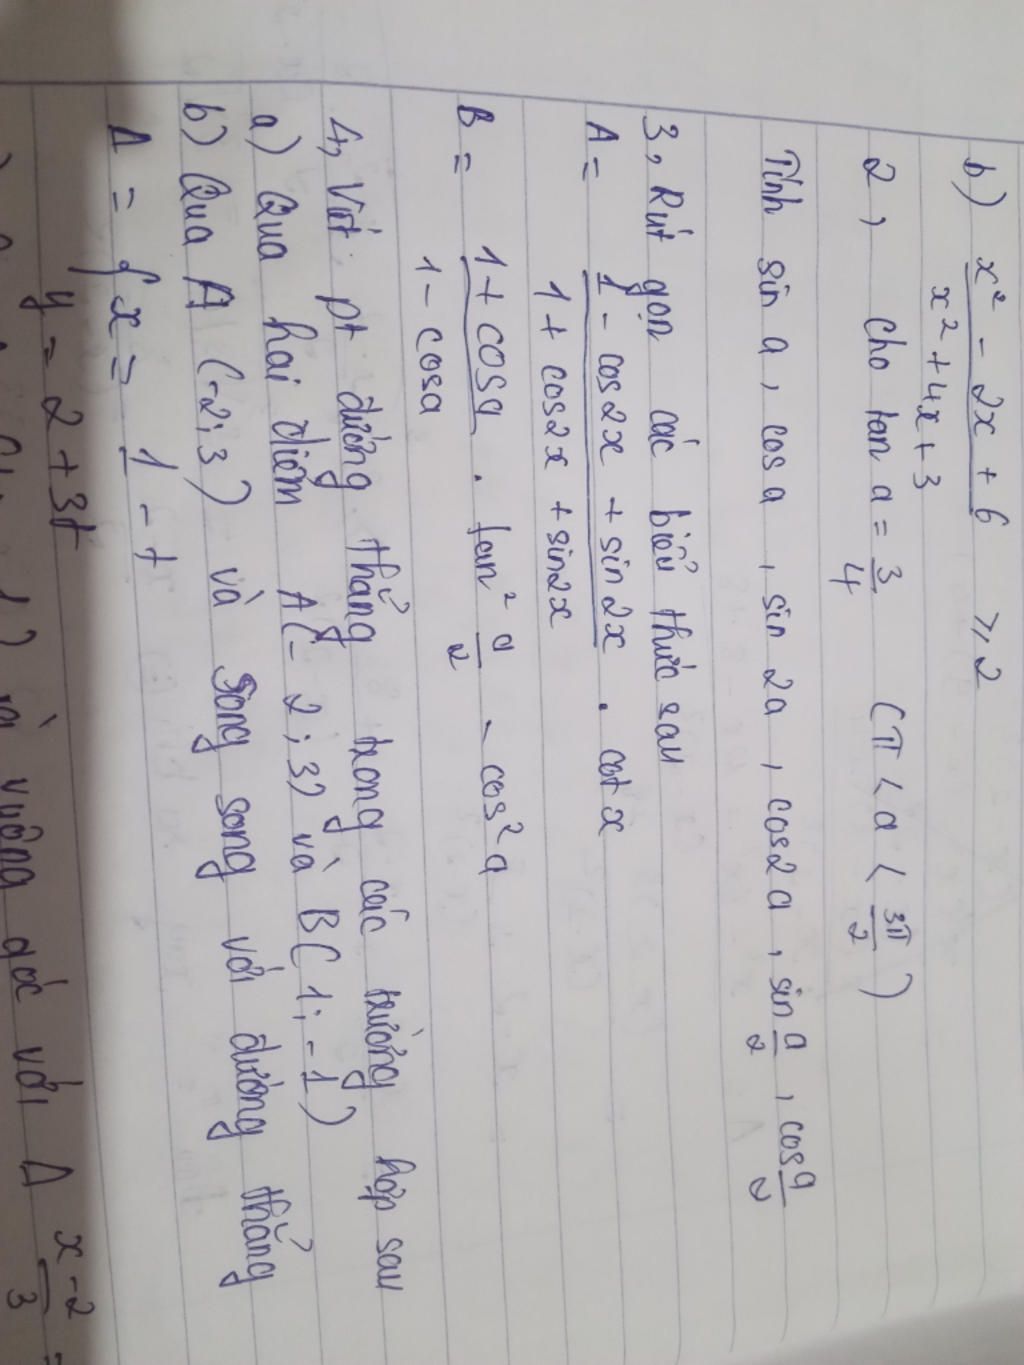 b) x² - 2x + 6 ⩾ 2
x² + 4x + 3
2, cho tan a = 3/4 (π < a < 3π/2)
Tính sin a, cos a, sin 2a, cos2a, sin a/2, cos a/2
3, Rút gọn các biểu thức sau
A = 1 - cos2x + sin 2x . cot x
1 + cos2x + sin2x
B = 1 + cosa . tan² a/2 - cos² a
1 - cosa
4, Viết pt đường thẳng trong các trường hợp sau
a) Qua hai điểm A(-2;3) và B(1;-1)
b) Qua A (-2;3) và song song với đường thẳng
Δ = { x = 1 - t
y = 2 + 3t
vuông góc với Δ x-2/3 =